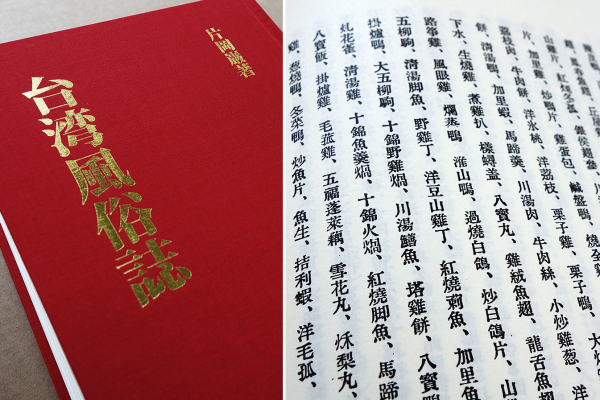 片岡巖著
台湾風俗誌
片、加里雞、炒鴨片、雞蛋包、鹹盤鴨、
荔枝肉、牛肉餅、洋水桃、洋荔枝、栗子雞、栗子鴨、
餅、清湯鴨、加里蝦、馬蹄羹、川湯肉、牛肉絲、小炒雞葱、洋
下水、生燒雞、煮雞扒、樣蟳盖、八寶丸、雞絨魚翅、龍舌魚翅
路筝雞、風眼雞、爛蒸鴨、淮山鴨、過燒白鴿、炒白鴿片、山
五柳駒、清湯脚魚、野雞丁、洋豆山雞丁、紅燒葪魚、加里魚
掛爐鴨、大五柳駒、十錦野雞焗、川湯鱔魚、塔雞餅、八寳鴨
炾花雀、清湯雞、十錦魚羹焗、十錦火焗、紅燒脚魚、馬蹄
八寶飯、掛爐雞、毛菰雞、五福蓬萊藕、雪花丸、炑梨丸、
雞、葱燒鴨、冬菜鴨、炒魚片、魚生、拮利蝦、洋毛孤、